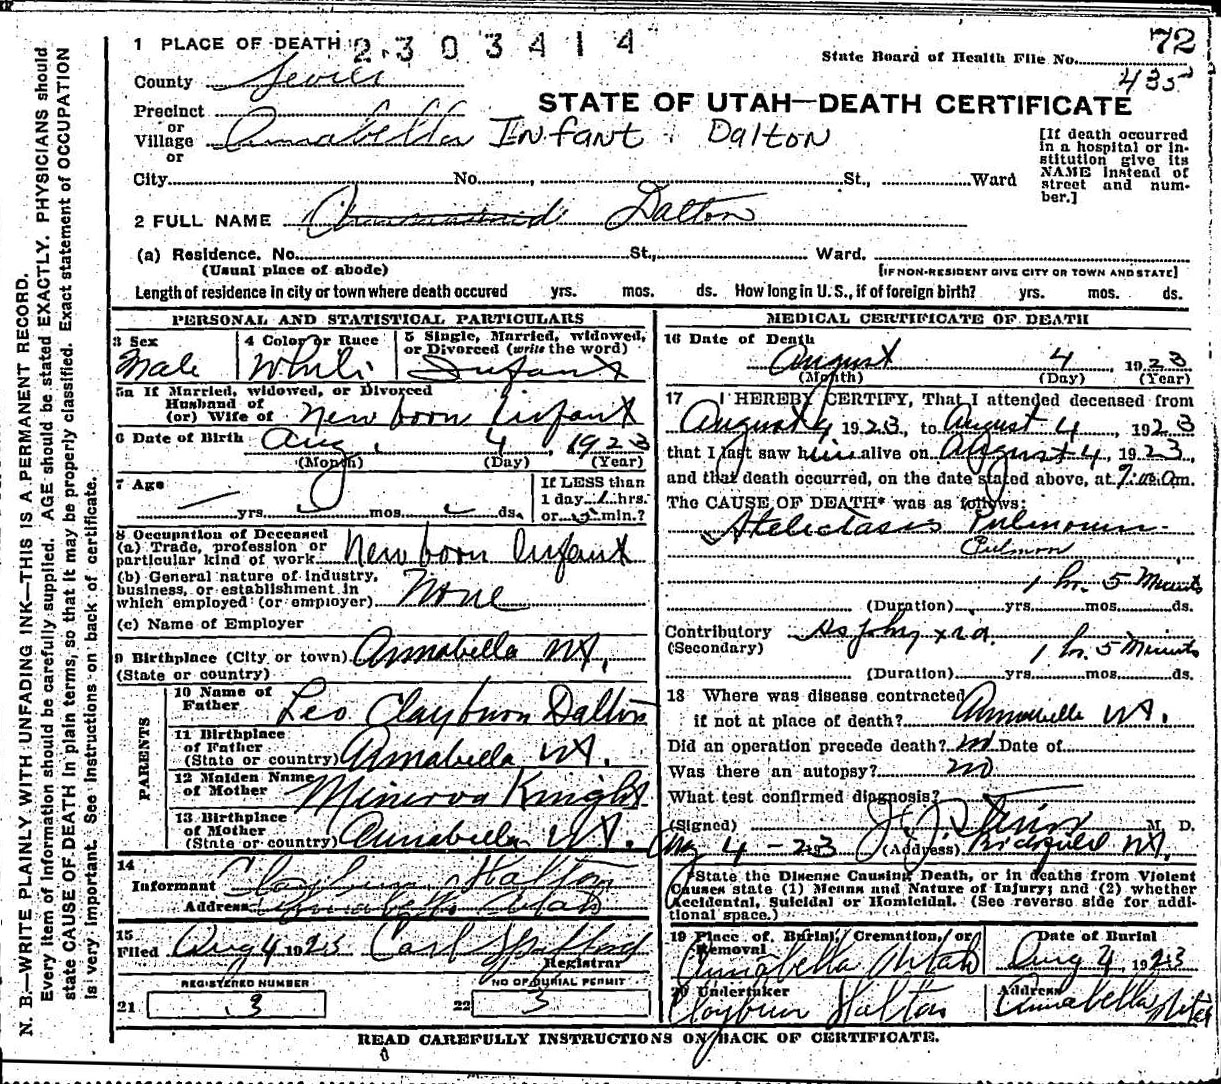 72
1 PLACE OF DEATH 2303414
State Board of Health File No.
435
County Sevier
STATE OF UTAH—DEATH CERTIFICATE
Precinct
or
Village Annabella Infant Dalton
or
[If death occurred
in a hospital or in-
stitution give its
NAME instead of
street and num-
ber.]
City No. , St., Ward
2 FULL NAME Dalton
(a) Residence. No. St., Ward.
(Usual place of abode) [IF NON-RESIDENT GIVE CITY OR TOWN AND STATE]
Length of residence in city or town where death occured yrs. mos. ds. How long in U. S., if of foreign birth? yrs. mos. ds.
PERSONAL AND STATISTICAL PARTICULARS
3 Sex
Male
4 Color or Race
White
5 Single, Married, widowed,
or Divorced (write the word)
Infant
5a If Married, widowed, or Divorced
Husband of
(or) Wife of New born Infant
6 Date of Birth Aug. 4, 1923
(Month) (Day) (Year)
7 Age
yrs. mos. ds.
If LESS than
1 day 1 hrs.
or 5 min.?
8 Occupation of Deceased
(a) Trade, profession or
particular kind of work New born Infant
(b) General nature of industry,
business, or establishment in
which employed (or employer) None
(c) Name of Employer
9 Birthplace (City or town) Annabella Ut.
(State or country)
PARENTS
10 Name of
Father Leo Clayburn Dalton
11 Birthplace
of Father
(State or country) Annabella Ut.
12 Maiden Name
of Mother Minerva Knight
13 Birthplace
of Mother
(State or country) Annabella Ut.
14
Informant Clayburn Dalton
Address Annabella Utah
15
Filed Aug 4 1923 Carl Spafford
Registrar
REGISTERED NUMBER
21 3
NO OF BURIAL PERMIT
22 3
MEDICAL CERTIFICATE OF DEATH
16 Date of Death
August 4 1923
(Month) (Day) (Year)
17 I HEREBY CERTIFY, That I attended deceased from
August 4 1923, to August 4, 1923
that I last saw him alive on August 4, 1923,
and that death occurred, on the date stated above, at 7: am.
The CAUSE OF DEATH* was as follows:
Atelectasis Pulmonum
Pulmon
1 hr. 5 Minuts
(Duration) yrs. mos. ds.
Contributory
(Secondary) 1 hr. 5 Minuts
(Duration) yrs. mos. ds.
18 Where was disease contracted
if not at place of death? Annabella Ut.
Did an operation precede death? no Date of
Was there an autopsy? no
What test confirmed diagnosis?
(Signed) J. J. M. D.
Aug 4 - 23 (Address) Richfield Ut.
*State the Disease Causing Death, or in deaths from Violent
Causes state (1) Means and Nature of Injury; and (2) whether
Accidental, Suicidal or Homicidal. (See reverse side for addi-
tional space.)
19 Place of Burial, Cremation, or
Removal
Annabella Utah
Date of Burial
Aug 4 1923
20 Undertaker
Clayburn Dalton
Address
Annabella Utah
READ CAREFULLY INSTRUCTIONS ON BACK OF CERTIFICATE.
N. B.—WRITE PLAINLY WITH UNFADING INK—THIS IS A PERMANENT RECORD.
Every item of information should be carefully supplied. AGE should be stated EXACTLY. PHYSICIANS should
state CAUSE OF DEATH in plain terms, so that it may be properly classified. Exact statement of OCCUPATION
is very important. See instructions on back of certificate.